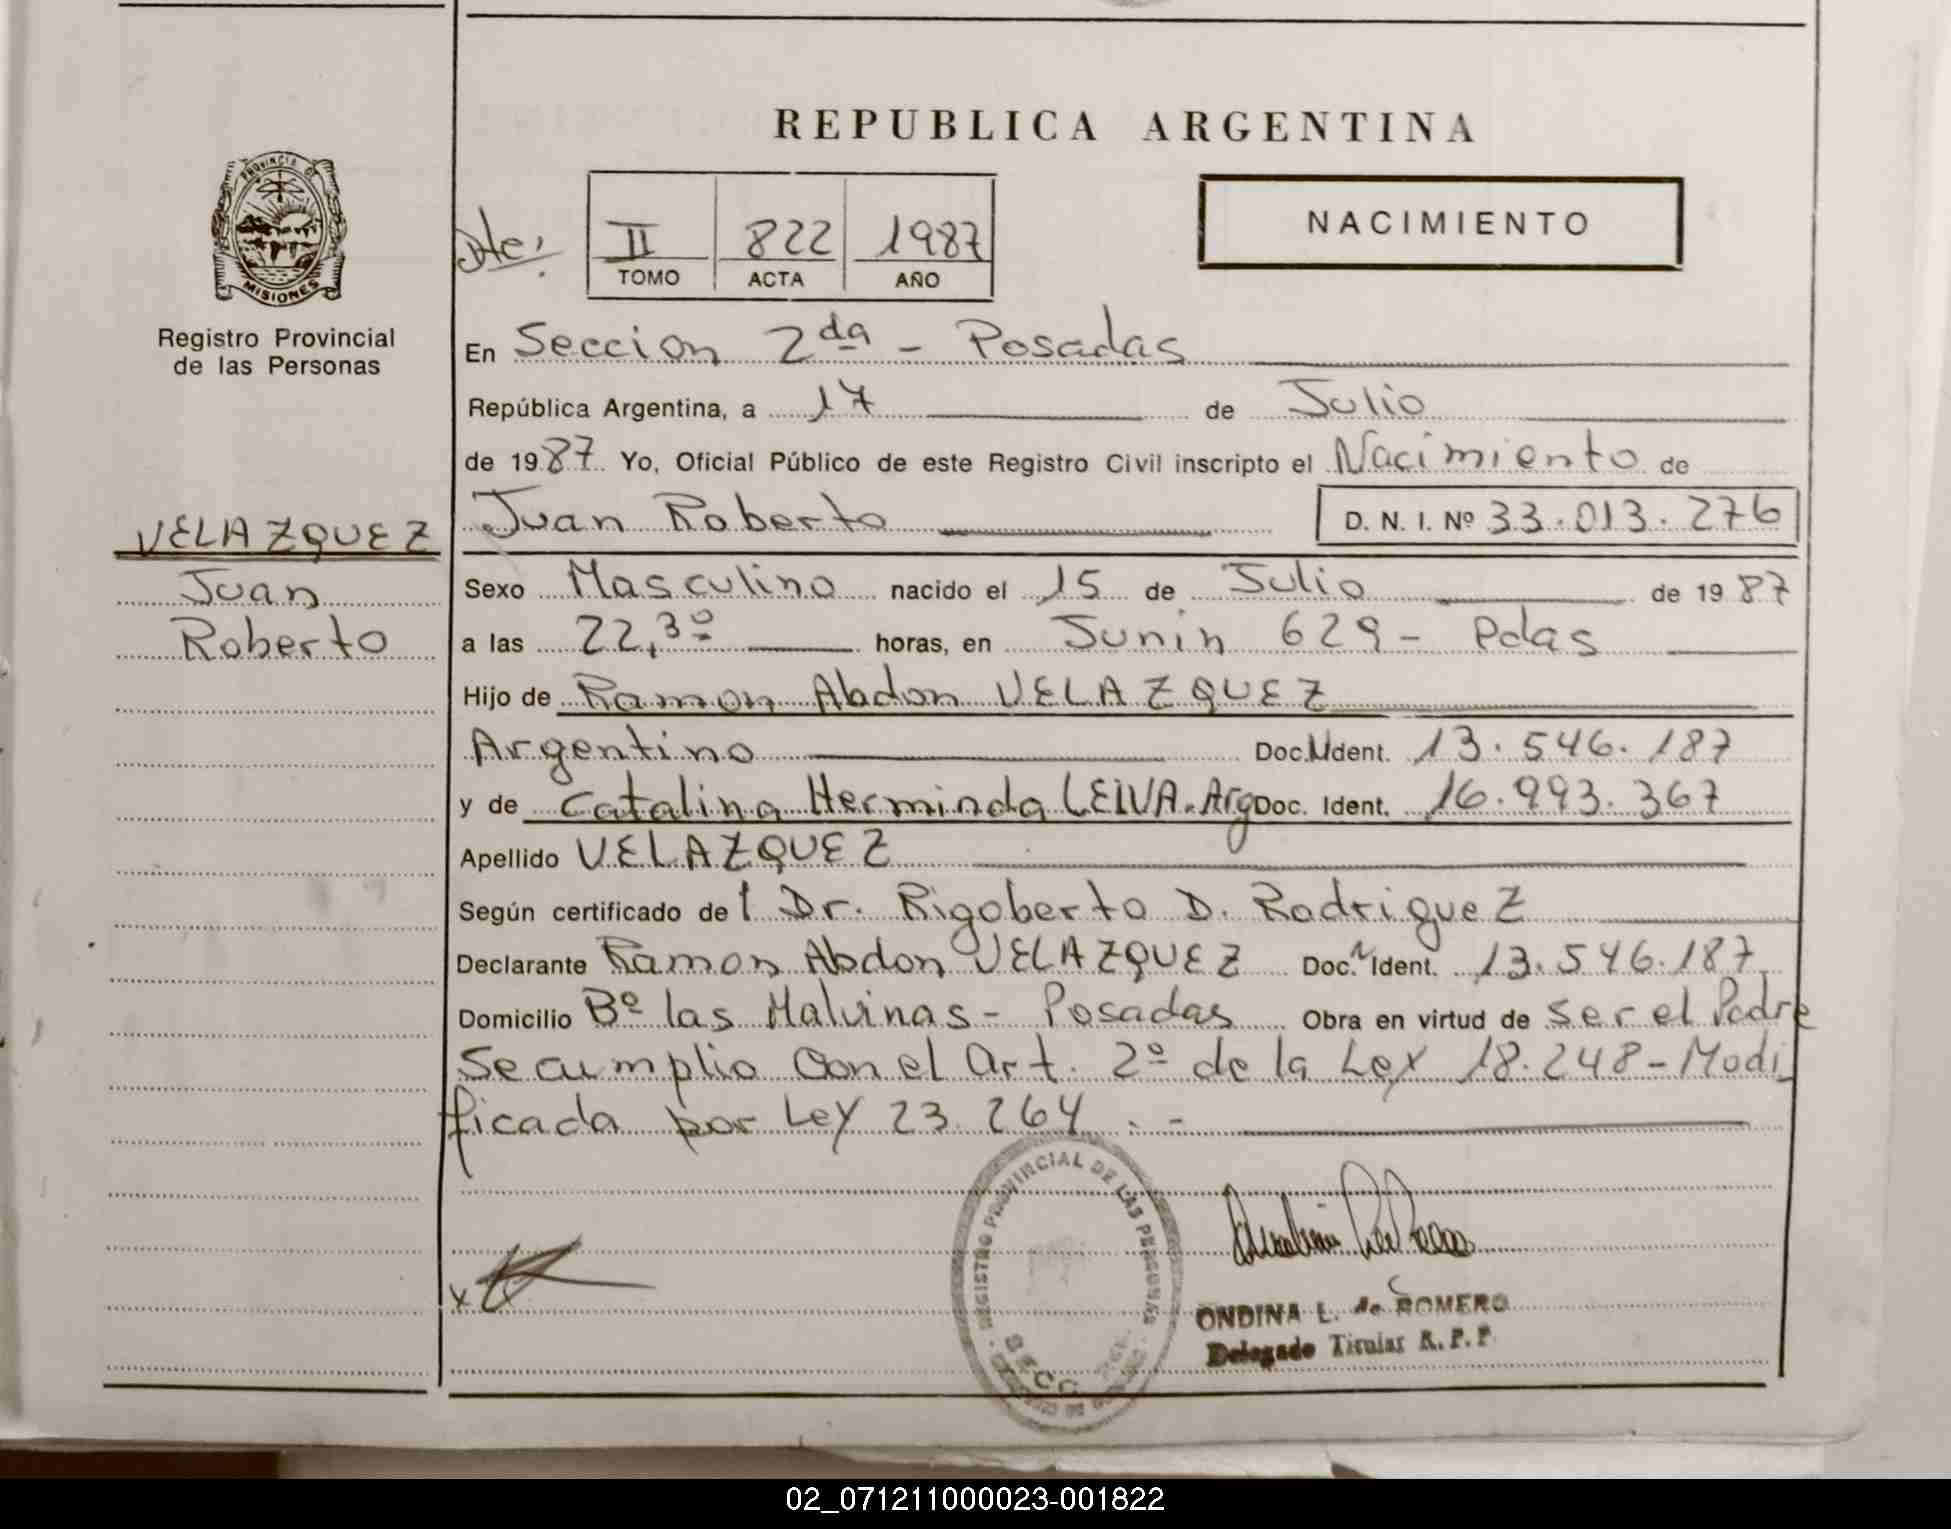 REPUBLICA ARGENTINA
PROVINCIA DE
MISIONES
Registro Provincial
de las Personas
II 822 1987
TOMO ACTA AÑO
NACIMIENTO
En Seccion 2da - Posadas
República Argentina, a 17 de Julio
de 1987 Yo, Oficial Público de este Registro Civil inscripto el Nacimiento de
Juan Roberto D. N. I. Nº 33.013.276
VELAZQUEZ
Juan
Roberto
Sexo Masculino nacido el 15 de Julio de 1987
a las 22,30 horas, en Junin 629 - Pdas
Hijo de Ramon Abdon VELAZQUEZ
Argentino Doc. Ident. 13.546.187
y de Catalina Herminda LEIVA. Arg Doc. Ident. 16.993.367
Apellido VELAZQUEZ
Según certificado del Dr. Rigoberto D. Rodriguez
Declarante Ramon Abdon VELAZQUEZ Doc. Ident. 13.546.187
Domicilio Bº las Malvinas - Posadas Obra en virtud de ser el Padre
Se cumplio con el Art. 2º de la Ley 18.248 - Modi
ficada por Ley 23.264 . -
REGISTRO PROVINCIAL DE LAS PERSONAS
SECC
ONDINA L. de ROMERO
Delegado Titular R. P. P.
02_071211000023-001822